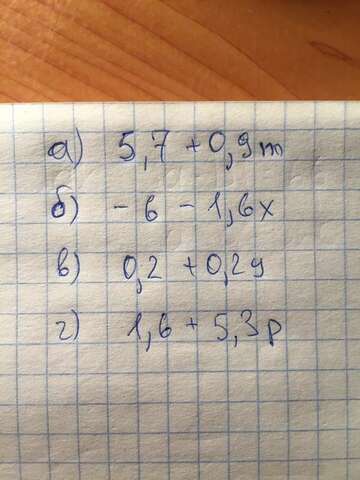 а) 5,7 + 0,9m
б) - 6 - 1,6x
в) 0,2 + 0,2y
г) 1,6 + 5,3p